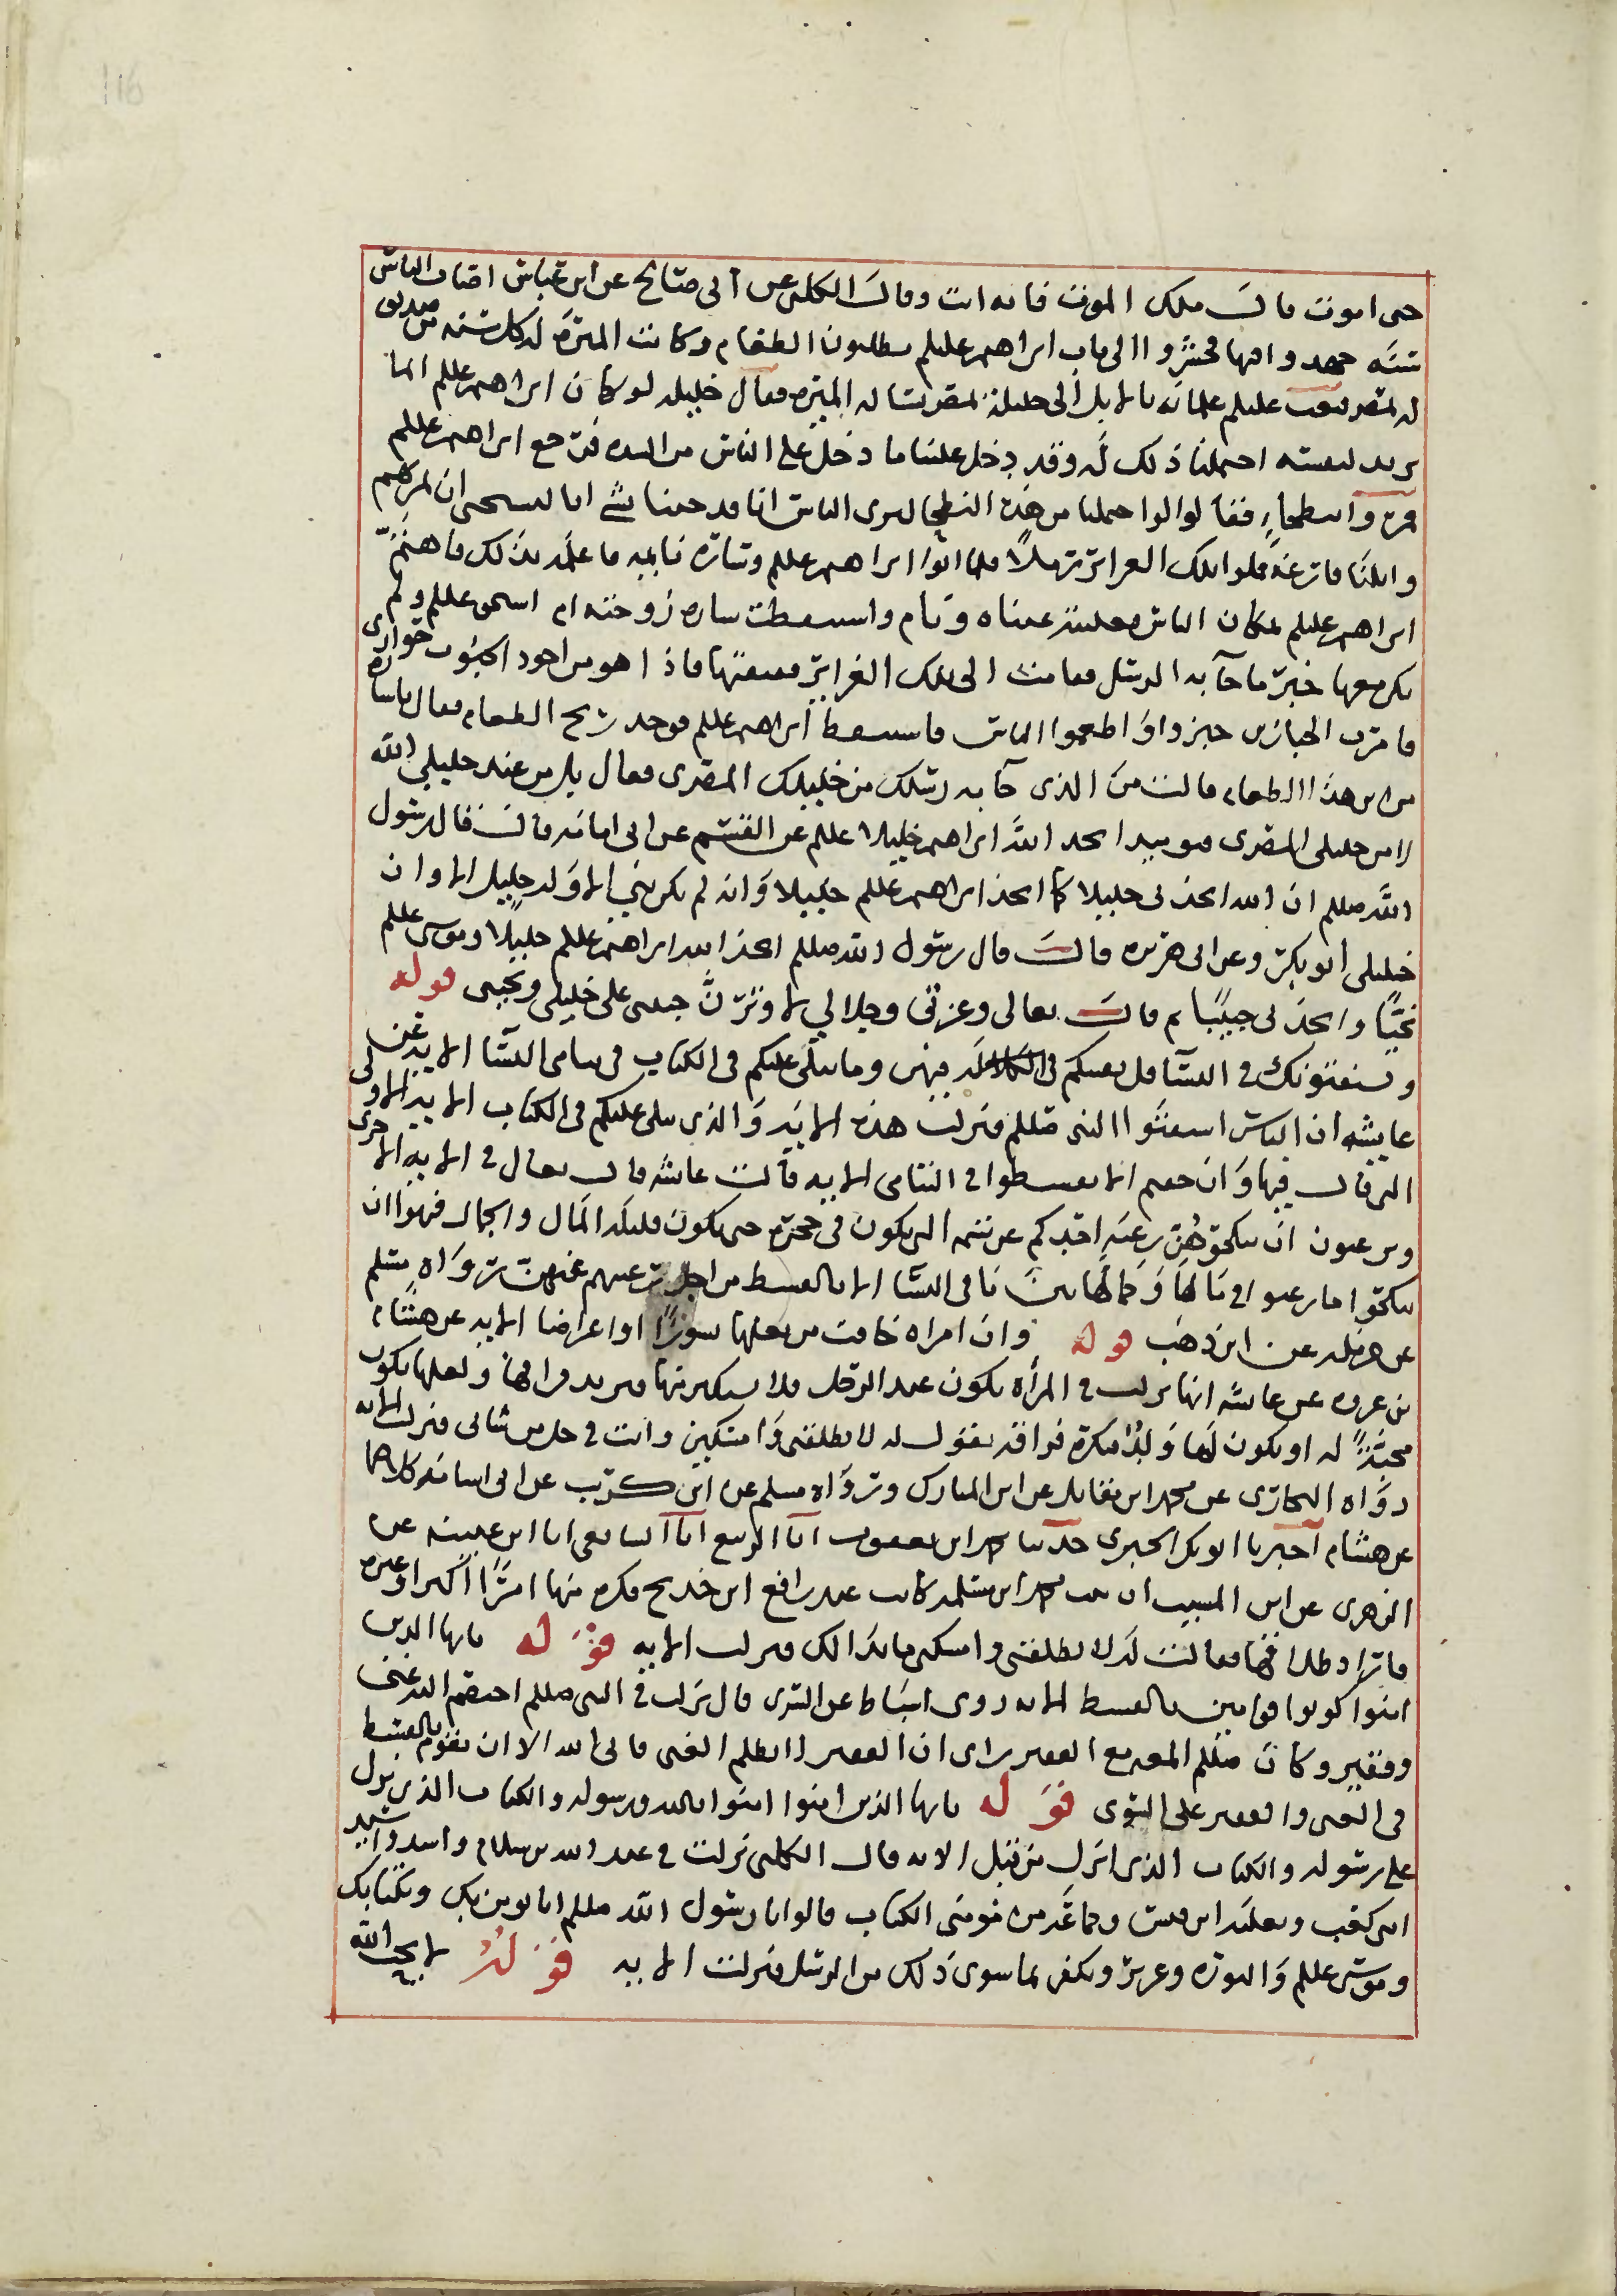 حى اموت قال ملك الموت فانه انت وقال الكلبى عن ابى صالح عن ابن عباس اصاب الناس
سنه جهدوا فيها فحشروا الى باب ابراهيم عليلم يطلبون الطعام وكانت الميرة له كل سنه من صديق
له بمصر فبعث عليلم غلمانه بالابل الى خليله بمصر يساله الميرة فقال خليله لو كان ابراهيم عللم انما
يريد لنفسه احتملنا ذلك له وقد دخل علينا ما دخل على الناس من الشده فرجع ابراهيم عللم
فمروا ببطحاء فقالوا لوا حملنا من هذه البطحا ليرى الناس انا قد جينا بشى انا لنستحى ان نمر بهم
وابلنا فارغة فملوا تلك الغراير رملا فلما اتوا ابراهيم عللم وساره نايمه ما علمه بذلك فاهتم
ابراهيم عليلم لمكان الناس فغلبته عيناه ونام واستيقظت ساره زوجته ام اسحق عللم ولم
يكن معها خبر ما جآ به الرسل فقامت الى تلك الغراير ففتقتها فاذا هو من اجود الحبوب حوارى
فامرت الخبازين خبزوا واطعموا الناس فاستيقظ ابراهيم عللم فوجد ريح الطعام فقال ياساره
من اين هذا الطعام قالت من الذى جآ به رسلك من خليلك المصرى فقال بل من عند خليلي الله
لا من خليلى المصرى فيوميذ اتخذ الله ابراهيم خليلا عللم عن القسم عن ابى امامه قال قال رسول
الله صللم ان الله اتخذنى خليلا كما اتخذ ابراهيم عللم خليلا وانه لم يكن نبي الا وله خليل الا وان
خليلى ابو بكر وعن ابى هريره قال قال رسول الله صللم اتخذ الله ابراهيم عللم خليلا وموسى عللم
نجيا واتخذنى حبيبا ثم قال تعالى وعزتى وجلالي لاوثرن حبيبى على خليلى ونجيى قوله
ويستفتونك فى النسآ قل الله يفتيكم فيهن وما يتلى عليكم فى الكتاب فى يتامى النسآ الايه عن
عايشه ان الناس استفتوا النبى صللم فنزلت هذه الايه والذى يتلى عليكم فى الكتاب الايه الاولى
التى قال فيها وان خفتم الا تقسطوا فى اليتامى الايه قالت عايشه قال تعالى فى الايه الاخرى
وترغبون ان تنكحوهن رغبة احدكم عن يتيمه التى تكون فى حجره حى تكون قليله المال والجمال فنهوا ان
ينكحوا ما رغبوا فى مالها وجمالها من يتامى النسا الا بالقسط من اجل رغبتهم عنهن رواه مسلم
عن حرمله عن ابن وهب قوله وان امراه خافت من بعلها نشوزا او اعراضا الايه عن هشام
بن عروه عن عايشه انها نزلت فى المراة تكون عند الرجل فلا يستكثر منها فيريد فراقها ولعلها تكون
محبة له او يكون لها ولد فتكره فراقه فتقول له لا تطلقنى وامسكنى وانت فى حل من شانى فنزلت الايه
رواه البخارى عن محمد ابن مقاتل عن ابن المبارك ورواه مسلم عن ابى كريب عن ابى اسامه كلاهما
عن هشام اخبرنا ابو بكر الحيرى حدثنا محمد ابن يعقوب انا الربيع انا الشافعى انا ابن عيينه عن
الزهرى عن ابن المسيب ان بنت محمد ابن مسلمه كانت عند رافع ابن خديج فكره منها امرا اكبرا وغيره
فاراد طلاقها فقالت له لا تطلقنى وامسكنى ما بدا لك فنزلت الايه قوله ياايها الذين
امنوا كونوا قوامين بالقسط الايه روى اسباط عن السدى قال نزلت فى النبى صللم اختصم اليه غنى
وفقير وكان صللم المعه مع الفقير راى ان الفقير لا يظلم الغنى فابى الله الا ان يقوم بالقسط
فى الغنى والفقير على السوى قوله ياايها الذين امنوا امنوا بالله ورسوله والكتاب الذى نزل
على رسوله والكتاب الذى انزل من قبل الايه قال الكلبى نزلت فى عبد الله بن سلام واسد واسيد
ابنى كعب وثعلبه ابن قيس وجماعه من مومنى الكتاب قالوا يا رسول الله صللم انا نومن بك وبكتابك
وموسى عللم والتورة وعزير ونكفر بما سوى ذلك من الرسل فنزلت الايه قوله لا يحب الله